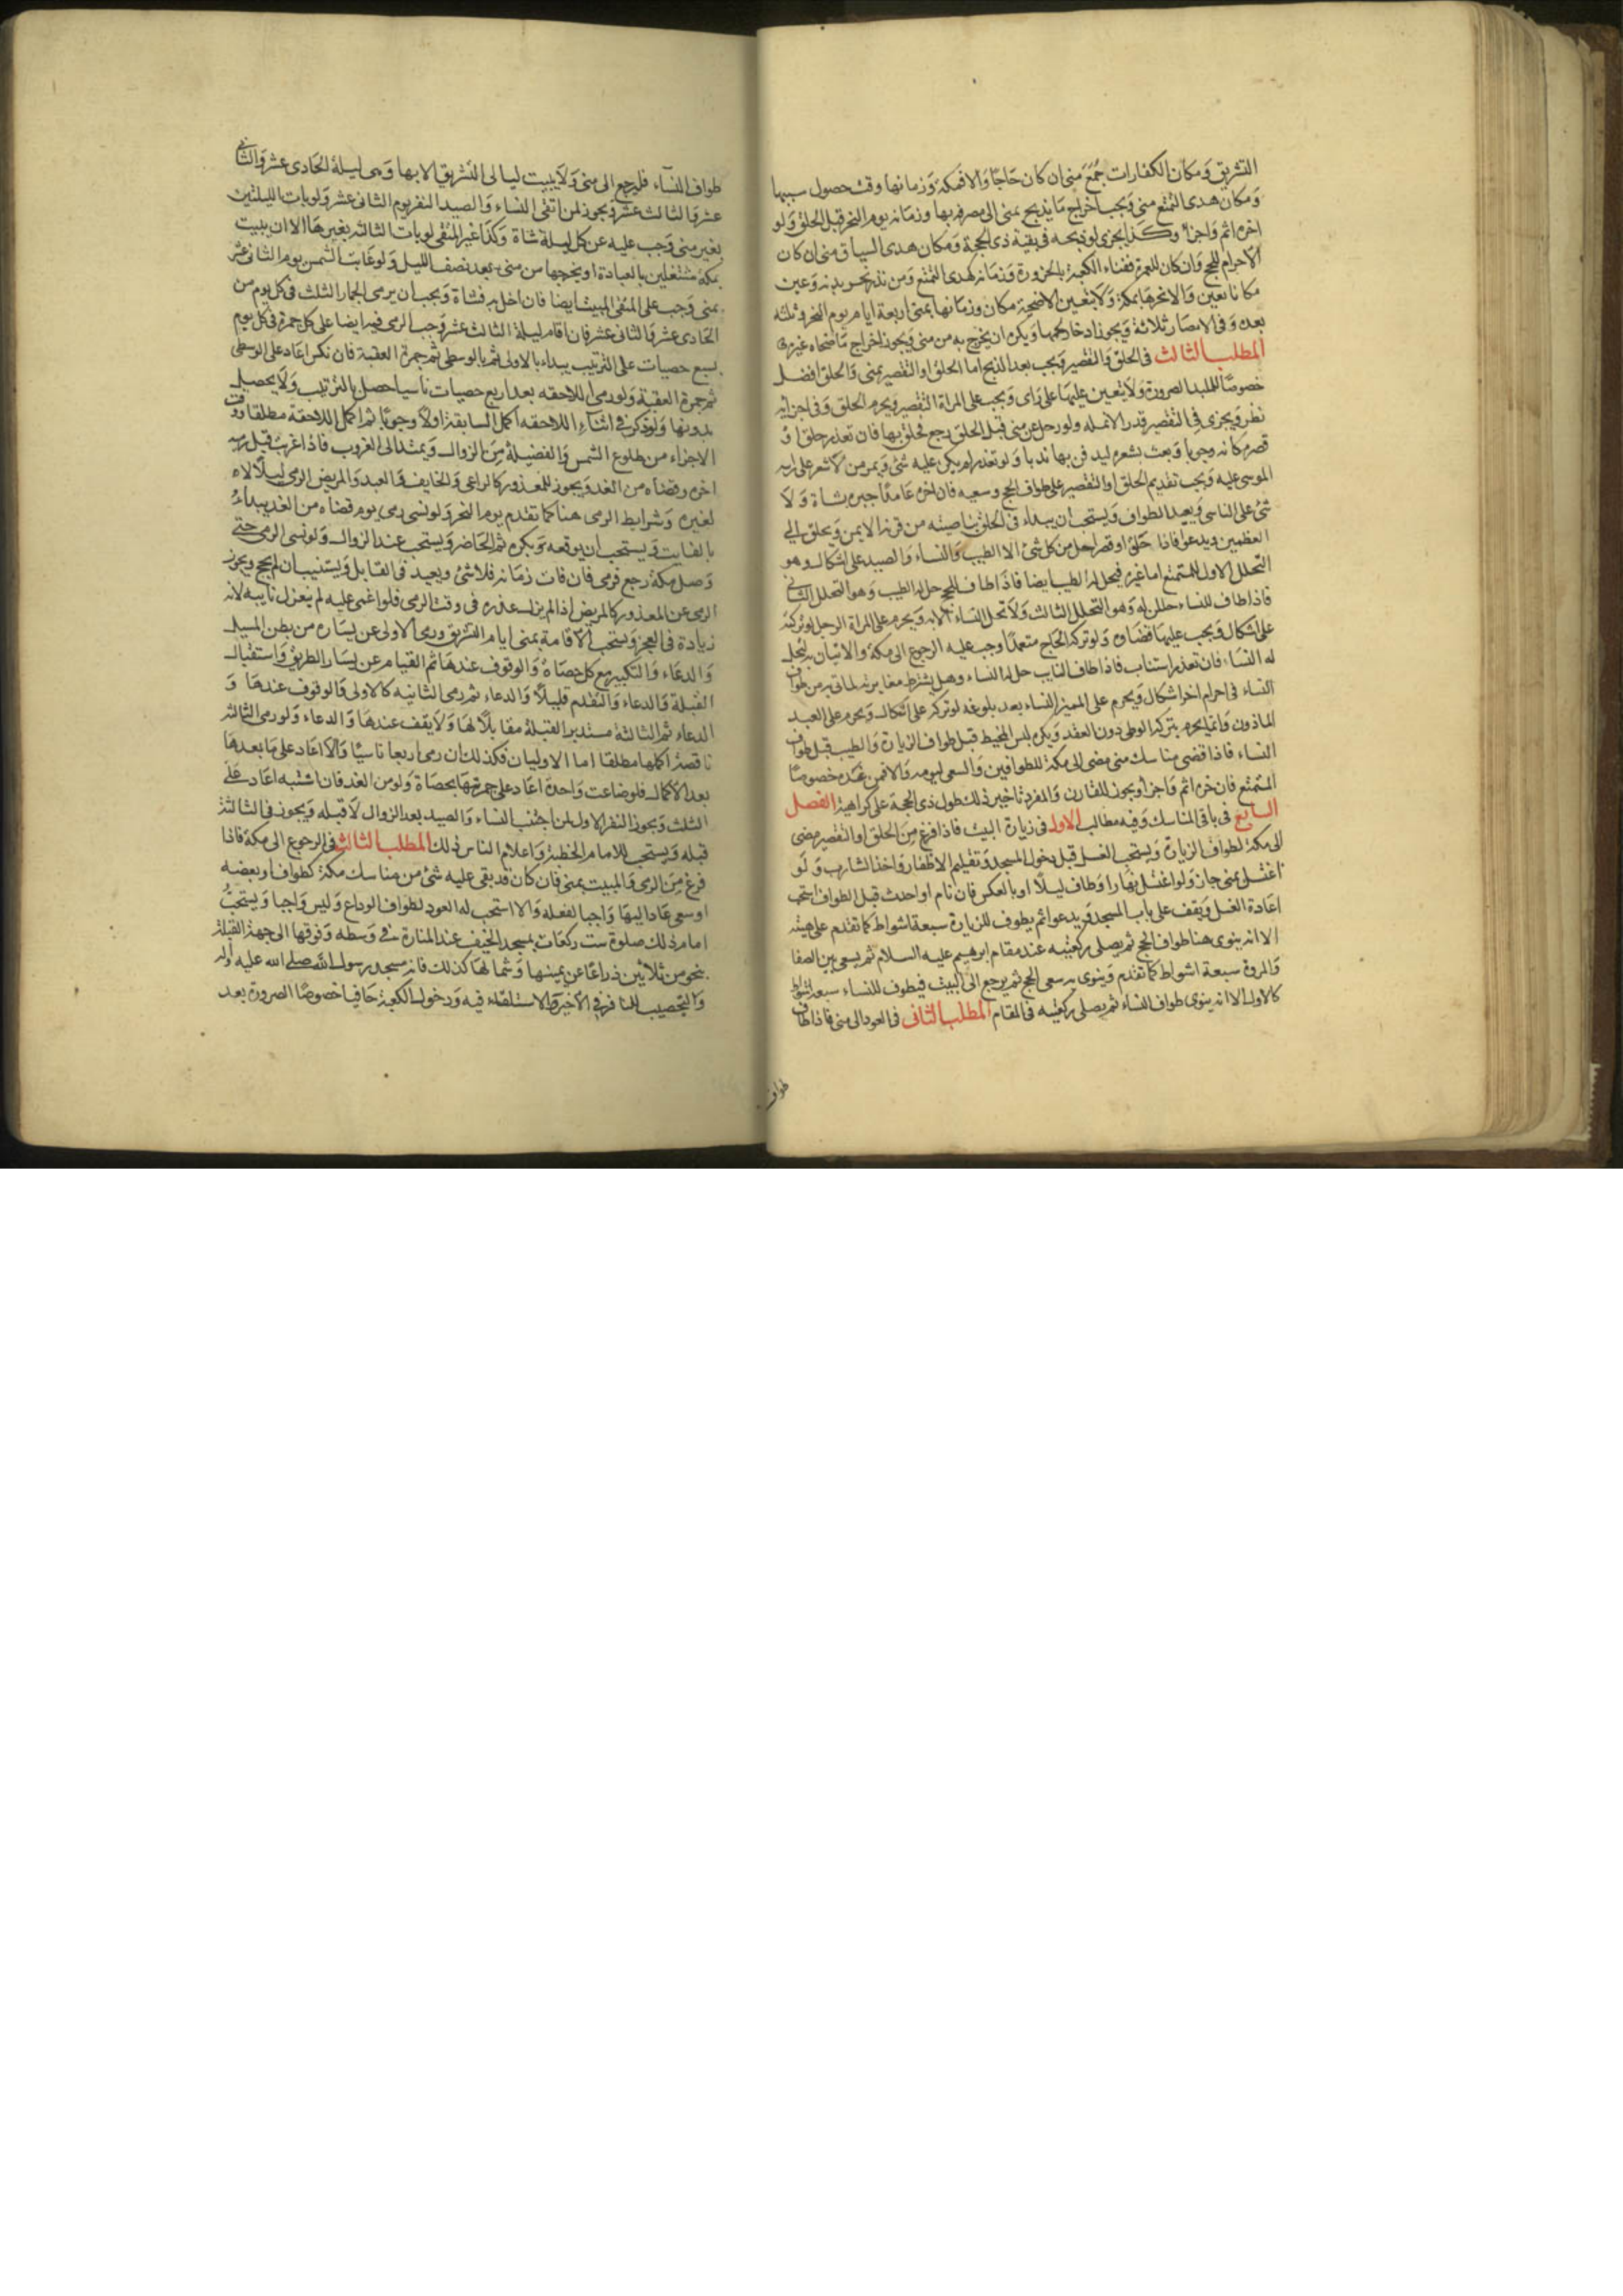 التشريق ومكان الكفارات جُمَعَ منى ان كان حاجا والا فمكة وزمانها وقت حصول سببها
ومكان هدى التمتع منى ويجب اخراج ما يذبح بمنى الى مصرفه بها وزمانه يوم النحر قبل الحلق ولو
اخره اثم واجزأ وكذا يجزى لو ذبحه فى بقية ذى الحجة ومكان هدى السياق منى ان كان
الاحرام للحج وان كان للعمرة ففناء الكعبة بالحزورة وزمانه كهدى التمتع ومن نذر نحر بدنه وعين
مكانا تعين والا نحرها بمكة ولا يتعين للاضحية مكان وزمانها بمنى اربعة ايام يوم النحر وثلثه
بعده وفى الامصار ثلاثة ويجوز ادخار لحمها ويكره ان يخرج به من منى ويجوز اخراج ما ضحاه غيره
المطلب الثالث فى الحلق والتقصير ويجب بعد الذبح اما الحلق او التقصير بمنى والحلق افضل
خصوصا للملبد والصرورة ولا يتعين عليهما على راى ويجب على المراة التقصير ويحرم الحلق وفى اجزائه
نظر ويجزى فى التقصير قدر الانمله ولو رحل عن منى قبل الحلق رجع فحلق بها فان تعذر حلق او
قصر مكانه وجوبا وبعث بشعره ليدفن بها ندبا ولو تعذر لم يكن عليه شئ ويمر من لا شعر على راسه
الموسى عليه ويجب تقديم الحلق او التقصير على طواف الحج وسعيه فان اخره عامدا جبره بشاة ولا
شئ على الناسى ويعيد الطواف ويستحب ان يبداء فى الحلق بناصيته من قرنه الايمن ويحلق الى
العظمين ويدعو فاذا حلق او قصر احل من كل شئ الا الطيب والنساء والصيد على اشكال وهو
التحلل الاول للمتمتع اما غيره فيحل له الطيب ايضا فاذا طاف للحج حل له الطيب وهو التحلل الثانى
فاذا طاف للنساء حللن له وهو التحلل الثالث ولا تحل النساء الا به ويحرم على المراة الرجل لو تركته
على اشكال ويجب عليها قضاوه ولو تركه الحاج متعمدا وجب عليه الرجوع الى مكة والاتيان به لتحل
له النساء فان تعذر استناب فاذا طاف النايب حل له النساء وهل يشترط مغايرته لما اتى به من طواف
النساء فى احرام اخر اشكال ويحرم على المميز النساء بعد بلوغه لو تركه على اشكال ويحرم على العبد
الماذون وانما يحرم بتركه الوطى دون العقد ويكره لبس المخيط قبل طواف الزيارة والطيب قبل طواف
النساء فاذا قضى مناسك منى مضى الى مكة للطوافين والسعى ليومه والا فمن غده خصوصا
المتمتع فان اخره اثم واجزأ ويجوز للقارن والمفرد تاخير ذلك طول ذى الحجة على كراهية الفصل
السابع فى باقى المناسك وفيه مطالب الاول فى زيارة البيت فاذا فرغ من الحلق او التقصير مضى
الى مكة لطواف الزيارة ويستحب الغسل قبل دخول المسجد وتقليم الاظفار واخذ الشارب ولو
اغتسل بمنى جاز ولو اغتسل نهارا وطاف ليلا او بالعكس فان نام او احدث قبل الطواف استحب
اعادة الغسل ويقف على باب المسجد ويدعوا ثم يطوف للزيارة سبعة اشواط كما تقدم على هيئته
الا انه ينوى هنا طواف الحج ثم يصلى ركعتيه عند مقام ابرهيم عليه السلام ثم يسعى بين الصفا
والمروة سبعة اشواط كما تقدم وينوى به سعى الحج ثم يرجع الى البيت فيطوف للنساء سبعة اشواط
كالاول الا انه ينوى طواف النساء ثم يصلى ركعتيه فى المقام المطلب الثانى فى العود الى منى فاذا طاف
طواف
طواف النساء فليرجع الى منى ولا يبيت ليالى التشريق الا بها وهى ليلة الحادى عشر والثانى
عشر والثالث عشر ويجوز لمن اتقى النساء والصيد النفر يوم الثانى عشر ولو بات الليلتين
بغير منى وجب عليه عن كل ليلة شاة وكذا غير المتقى لو بات الثالثه بغيرها الا ان يبيت
بمكة مشتغلين بالعبادة او يخرجها من منى بعد نصف الليل ولو غابت الشمس يوم الثانى عشر
بمنى وجب على المتقى المبيت ايضا فان اخل به فشاة ويجب ان يرمى الجمار الثلث فى كل يوم من
الحادى عشر والثانى عشر فان اقام ليلة الثالث عشر وجب الرمى فيه ايضا على كل جمرة فى كل يوم
بسبع حصيات على الترتيب يبداء بالاولى ثم بالوسطى ثم جمرة العقبة فان نكس اعاد على الوسطى
ثم جمرة العقبة ولو رمى اللاحقه بعد اربع حصيات ناسيا حصل بالترتيب ولا يحصل
بدونها ولو ذكر فى اثناء اللاحقه اكمل السابقة اولا وجوبا ثم اكمل اللاحقة مطلقا ووقت
الاجزاء من طلوع الشمس والفضيلة من الزوال ويمتد الى الغروب فاذا غربت قبل رميه
اخره وقضاه من الغد ويجوز للمعذور كالراعى والخايف والعبد والمريض الرمى ليلا لا
لغيره وشرايط الرمى هنا كما تقدم يوم النحر ولو نسى رمى يوم قضاه من الغد يبداء
بالفايت ويستحب ان يوقعه بكرة ثم الحاضر ويستحب عند الزوال ولو نسى الرمى حتى
وصل مكة رجع فرمى فان فات زمانه فلا شئ ويعيد فى القابل او يستنيب ان لم يحج ويجوز
الرمى عن المعذور كالمريض اذا لم يزل عذره فى وقت الرمى فلو اغمى عليه لم ينعزل نايبه لانه
زيادة فى العجز ويستحب الاقامة بمنى ايام التشريق ورمى الاولى عن يساره من بطن المسيل
والدعاء والتكبير مع كل حصاة والوقوف عندها ثم القيام عن يسار الطريق واستقبال
القبلة والدعاء والتقدم قليلا والدعاء ثم رمى الثانيه كالاولى والوقوف عندها و
الدعاء ثم الثالثة مستدبر القبلة مقابلا لها ولا يقف عندها والدعاء ولو رمى الثالثه
ناقصة اكملها مطلقا اما الاوليان فكذلك ان رمى اربعا ناسيا والا اعاد على ما بعدها
بعد الاكمال فلو ضاعت واحدة اعاد على جمرتها بحصاة ولو من الغد فان اشتبه اعاد على
الثلث ويجوز النفر الاول لمن اجتنب النساء والصيد بعد الزوال لا قبله ويجوز فى الثالثة
قبله ويستحب للامام الخطبة واعلام الناس ذلك المطلب الثالث فى الرجوع الى مكة فاذا
فرغ من الرمى والمبيت بمنى فان كان قد بقى عليه شئ من مناسك مكة كطواف او بعضه
او سعى عاد اليها واجبا لفعله والا استحب له العود لطواف الوداع وليس واجبا ويستحب
امام ذلك صلوة ست ركعات بمسجد الخيف عند المنارة فى وسطه وفوقها الى جهة القبلة
بنحو من ثلاثين ذراعا عن يمينها وشمالها كذلك فانه مسجد رسول الله صلى الله عليه وآله
والتحصيب للنافر فى الاخير والاستلقاء فيه ودخول الكعبة حافيا خصوصا الصرورة بعد